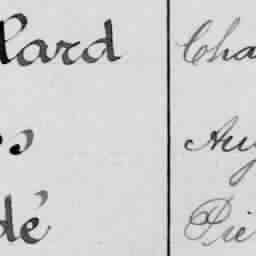 lard Cha
s Aug
dé Pie